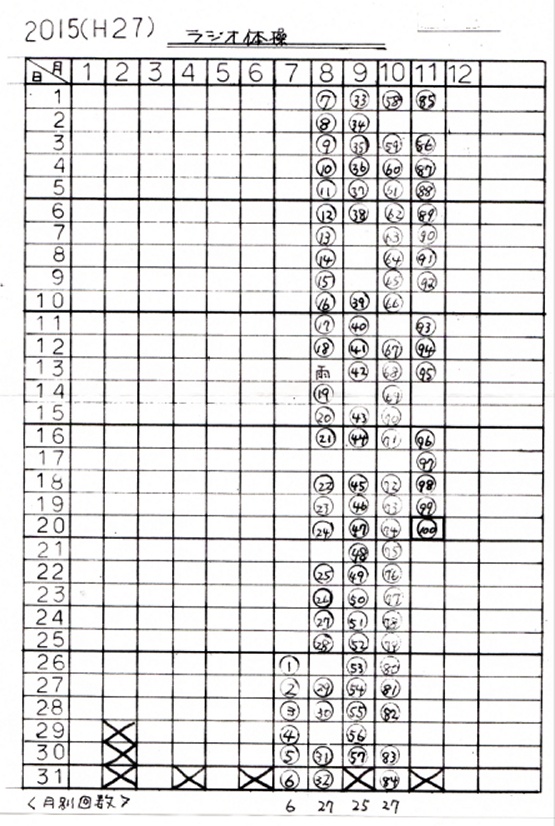 2015(H27) ラジオ体操
日 月 1 2 3 4 5 6 7 8 9 10 11 12
1 ⑦ ㉝ 58 85
2 ⑧ ㉞
3 ⑨ ㉟ 59 86
4 ⑩ ㊱ 60 87
5 ⑪ ㊲ 61 88
6 ⑫ ㊳ 62 89
7 ⑬ 63 90
8 ⑭ 64 91
9 ⑮ 65 92
10 ⑯ ㊴ 66
11 ⑰ ㊵ 93
12 ⑱ ㊶ 67 94
13 雨 ㊷ 68 95
14 ⑲ 69
15 ⑳ ㊸ 70
16 ㉑ ㊹ 71 96
17 97
18 ㉒ ㊺ 72 98
19 ㉓ ㊻ 73 99
20 ㉔ ㊼ 74 100
21 ㊽ 75
22 ㉕ ㊾ 76
23 ㉖ ㊿ 77
24 ㉗ 51 78
25 ㉘ 52 79
26 ① 53 80
27 ② ㉙ 54 81
28 ③ ㉚ 55 82
29 ④ 56
30 ⑤ ㉛ 57 83
31 ⑥ ㉜ 84
<月別回数> 6 27 25 27